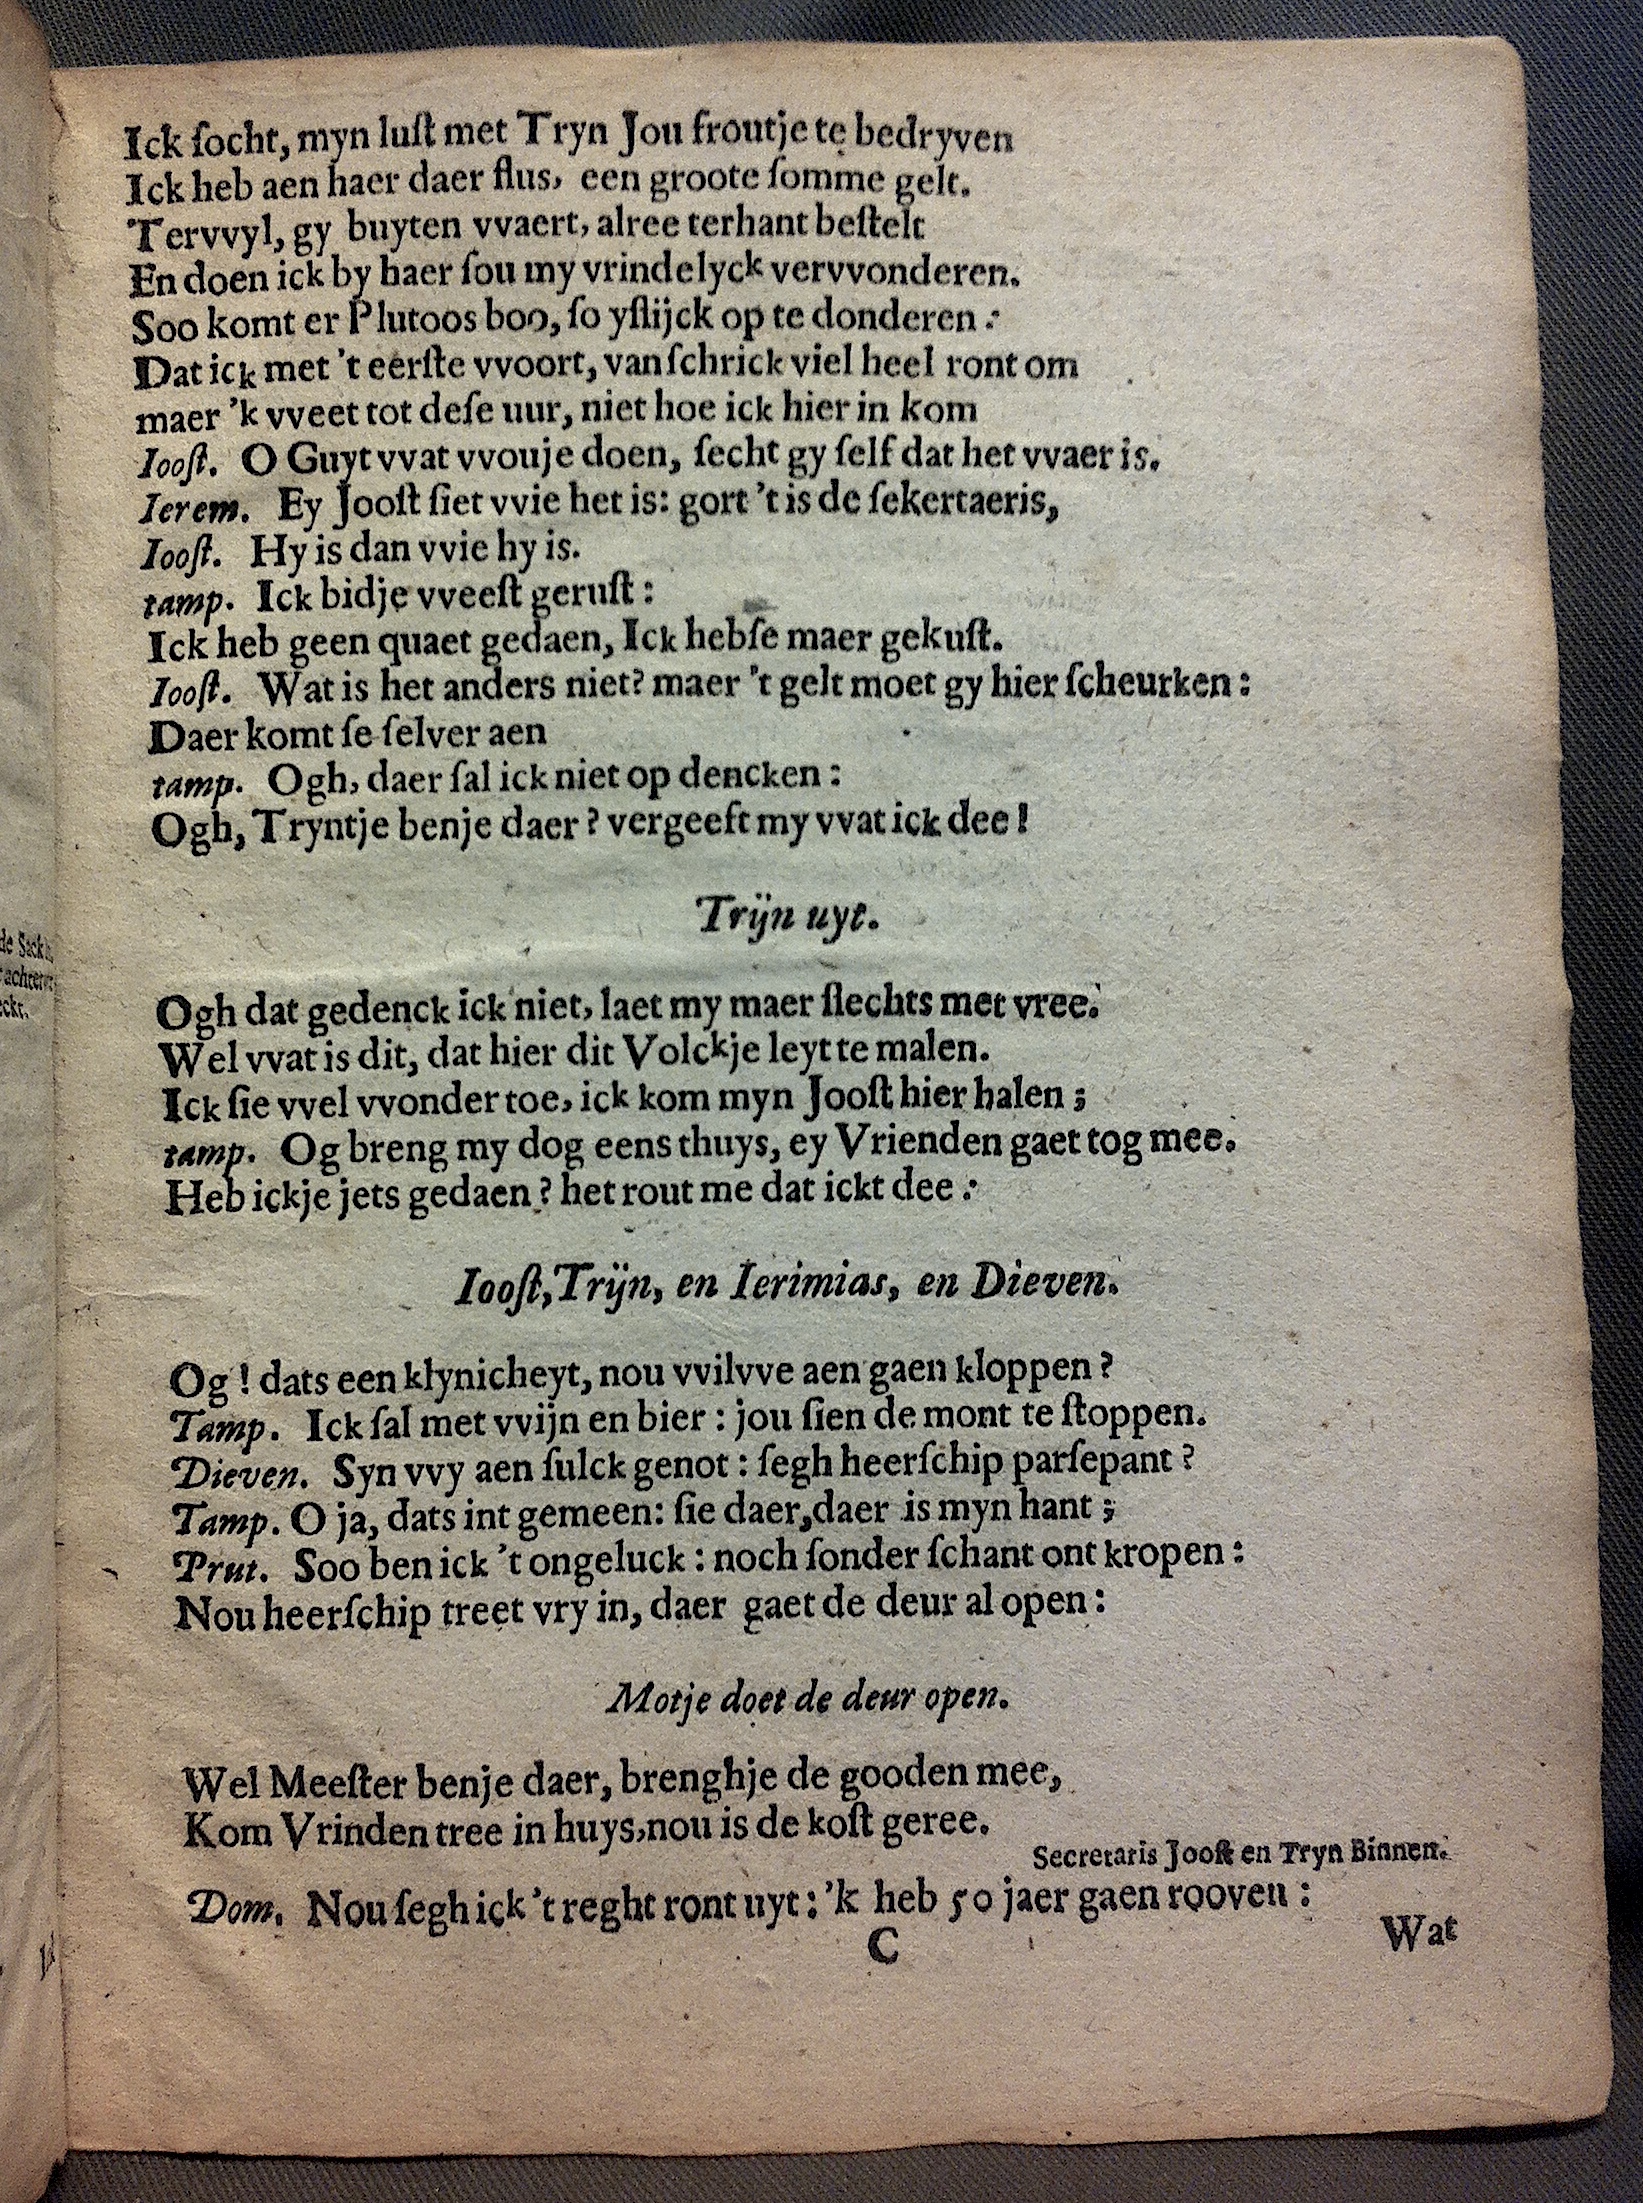 Ick ſocht, myn luſt met Tryn Jou froutje te bedryven
Ick heb aen haer daer flus, een groote ſomme gelt.
Tervvyl, gy buyten vvaert, alree terhant beſtelt
En doen ick by haer ſou my vrindelyck vervvonderen.
Soo komt er Plutoos boo, ſo yſlijck op te donderen:
Dat ick met 't eerſte vvoort, van ſchrick viel heel ront om
maer 'k vveet tot deſe uur, niet hoe ick hier in kom
Iooſt. O Guyt vvat vvouje doen, ſecht gy ſelf dat het vvaer is.
Ierem. Ey Jooſt ſiet vvie het is: gort 't is de ſekertaeris,
Iooſt. Hy is dan vvie hy is.
tamp. Ick bidje vveeſt geruſt:
Ick heb geen quaet gedaen, Ick hebſe maer gekuſt.
Iooſt. Wat is het anders niet? maer 't gelt moet gy hier ſcheurken:
Daer komt ſe ſelver aen
tamp. Ogh, daer ſal ick niet op dencken:
Ogh, Tryntje benje daer? vergeeft my vvat ick dee!
Trijn uyt.
Ogh dat gedenck ick niet, laet my maer ſlechts met vree.
Wel vvat is dit, dat hier dit Volckje leyt te malen.
Ick ſie vvel vvonder toe, ick kom myn Jooſt hier halen;
tamp. Og breng my dog eens thuys, ey Vrienden gaet tog mee.
Heb ickje jets gedaen? het rout me dat ickt dee:
Iooſt, Trijn, en Ierimias, en Dieven.
Og! dats een klynicheyt, nou vvilvve aen gaen kloppen?
Tamp. Ick ſal met vvijn en bier: jou ſien de mont te ſtoppen.
Dieven. Syn vvy aen ſulck genot: ſegh heerſchip parſepant?
Tamp. O ja, dats int gemeen: ſie daer, daer is myn hant;
Prut. Soo ben ick 't ongeluck: noch ſonder ſchant ont kropen:
Nou heerſchip treet vry in, daer gaet de deur al open:
Motje doet de deur open.
Wel Meeſter benje daer, brenghje de gooden mee,
Kom Vrinden tree in huys, nou is de koſt geree.
Secretaris Jooſt en Tryn Binnen.
Dom. Nou ſegh ick 't reght ront uyt: 'k heb 50 jaer gaen rooven:
C
Wat
de Sack
achter